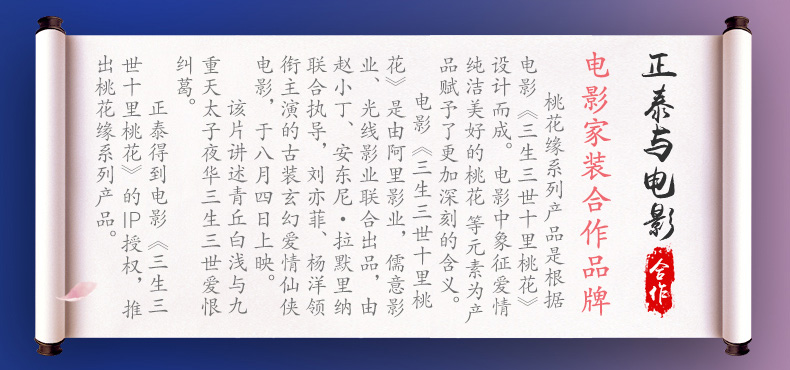 正泰与电影
合作
电影家装合作品牌
桃花缘系列产品是根据
电影《三生三世十里桃花》
设计而成。电影中象征爱情
纯洁美好的桃花 等元素为产
品赋予了更加深刻的含义。
电影《三生三世十里桃
花》是由阿里影业，儒意影
业、光线影业联合出品，由
赵小丁、安东尼·拉默里纳
联合执导，刘亦菲、杨洋领
衔主演的古装玄幻爱情仙侠
电影，于八月四日上映。
该片讲述青丘白浅与九
重天太子夜华三生三世爱恨
纠葛。
正泰得到电影《三生三
世十里桃花》的IP授权，推
出桃花缘系列产品。